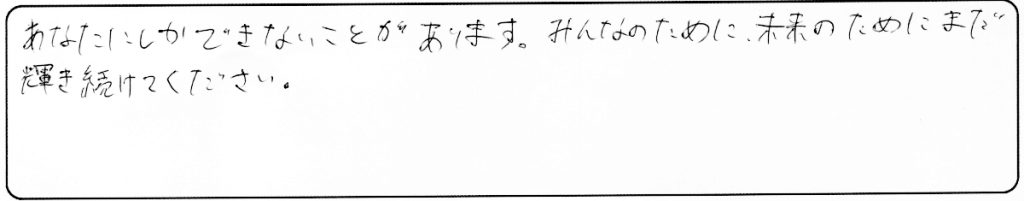 あなたにしかできないことがあります。みんなのために、未来のためにまだ
輝き続けてください。